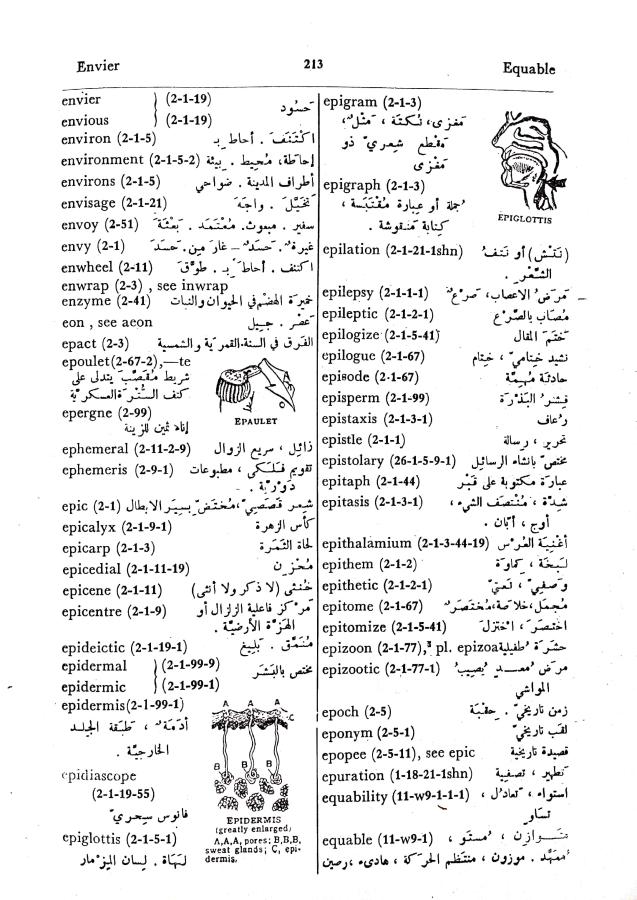 Envier 213 Equable
envier } (2-1-19) حَسُود
envious } (2-1-19)
environ (2-1-5) اكْتَنَفَ . أحاط بـ
environment (2-1-5-2) إحاطة، مُحيط . بيئة
environs (2-1-5) أطراف المدينة . ضواحي
envisage (2-1-21) تخَيَّلَ . واجَهَ
envoy (2-51) سفير . مبعوث . مُعْتَمَد . بَعْثَة
envy (2-1) غيرة . حَسَد – غار مِن . حَسَدَ
enwheel (2-11) اكتنف . أحاطَ بـ . طوَّقَ
enwrap (2-3) , see inwrap
enzyme (2-41) خميرَة الهضْم في الحيوان والنبات
eon , see aeon عَصْر . جيل
epact (2-3) الفَرق في السنة القمريّة والشمسية
epoulet(2-67-2),—te
شريط مُقصَّب يتدلى على
كتف السُّتْرة العسكريّة
EPAULET
epergne (2-99)
إناء ثمين للزينة
ephemeral (2-11-2-9) زائل ، سريع الزوال
ephemeris (2-9-1) تقويم فلَكي ، مطبوعات
دَوْريّة .
epic (2-1) شِعر قصَصيّ، مُختَصّ بسِيَر الابطال
epicalyx (2-1-9-1) كأس الزهرة
epicarp (2-1-3) لحاة الثمَرة
epicedial (2-1-11-19) مُحْزِن
epicene (2-1-11) خُنثى (لا ذكر ولا أنثى)
epicentre (2-1-9) مَرْكز فاعلية الزلزال أو
الهَزَّة الأرضيَّة .
epideictic (2-1-19-1) مُنَمَّق . بَليغ
epidermal } (2-1-99-9) مختص بالبَشَر
epidermic } (2-1-99-1)
epidermis(2-1-99-1)
أدَمَة ، طبقة الجلد
الخارجيَّة .
epidiascope
(2-1-19-55)
فانوس سحريّ
A A A
C
B B B
EPIDERMIS
(greatly enlarged)
A,A,A, pores; B,B,B,
sweat glands; C, epi-
dermis.
epiglottis (2-1-5-1)
لَهاة . لسان المِزمار
epigram (2-1-3)
مَغزى، نُكتة ، مَثل ،
مَقْطع شِعريّ ذو
مَغْزى
epigraph (2-1-3)
جُملة أو عبارة مُقْتَبَسة ،
كتابة مَنقوشة .
EPIGLOTTIS
epilation (2-1-21-1shn) (نَتْش) أو نَتف
الشَّعْر .
epilepsy (2-1-1-1) مَرَض الاعصاب، صَرْع
epileptic (2-1-2-1) مُصَاب بالصَّرْع
epilogize (2-1-5-41) خَتَمَ المَقال
epilogue (2-1-67) نشيد خِتاميّ ، خِتام
episode (2-1-67) حادثة مُهِمَّة
episperm (2-1-99) قِشر البَذْرَة
epistaxis (2-1-3-1) رُعاف
epistle (2-1-1) تحرير ، رسالة
epistolary (26-1-5-9-1) مختصّ بانشاء الرسائل
epitaph (2-1-44) عبارة مكتوبة على قبْر
epitasis (2-1-3-1) شِدَّة ، مُنْتَصَف الشيء ،
أوج ، أبَّان .
epithalamium (2-1-3-44-19) أغنِيَة العُرْس
epithem (2-1-2) لَبخَة ، كمادَة
epithetic (2-1-2-1) وَصفيّ ، نَعتيّ
epitome (2-1-67) مُجمَل، خُلاصَة، مُختصَر
epitomize (2-1-5-41) اختصَرَ ، اخْتَزَل
epizoon (2-1-77), pl. epizoa حشَرة طُفيلية
epizootic (2-1-77-1) مَرَض مُعدٍ يُصيب
المواشي
epoch (2-5) زمن تاريخيّ . حِقبَة
eponym (2-5-1) لقب تاريخيّ
epopee (2-5-11), see epic قصيدة تاريخية
epuration (1-18-21-1shn) تَطهير ، تصفية
equability (11-w9-1-1-1) استواء ، تعادُل ،
تساوٍ
equable (11-w9-1) مُتَـوازِن ، مُستَوٍ ،
مُمَهَّد . موزون ، منتظم الحركة ، هادىء ، رصين